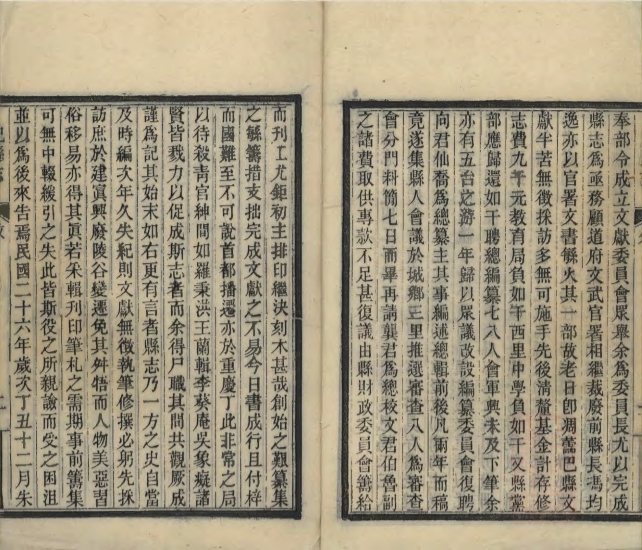 奉部令成立文獻委員會眾舉余為委員長尤以完成
縣志為亟務顧道府文武官署相繼裁廢前縣長馮均
逸亦以官署文書繇火其一部故老日即凋舊巴縣文
獻半苦無徵採訪多無可施手先後清釐基金計存修
志費九千元教育局負如干西里中學負如干又縣黨
部應歸還如干聘總編纂七八人會軍興未及下筆余
亦有五台之游一年歸以眾議改設編纂委員會復聘
向君仙喬為總纂主其事編述總輯前後凡兩年而稿
竟遂集縣人會議於城鄉三里推選審查八人為審查
會分門料簡七日而畢再請龔君為總校文君伯魯副
之諸費取供專款不足甚復議由縣財政委員會籌給
而刊工尤鉅初主排印繼決刻木甚哉創始之艱纂集
之緐籌措支拙完成文獻之不易今日書成行且付梓
而國難至不可說首都播遷亦於重慶丁此非常之局
以待殺青官紳間如羅秉洪王蘭輯李葵庵吳象癡諸
賢皆戮力以促成斯志者而余得尸職其間共觀厥成
謹為記其始末如右更有言者縣志乃一方之史自當
及時編次年久失紀則文獻無徵執筆修撰必躬先採
訪庶於建寘興廢陵谷變遷免其舛牾而人物美惡習
俗移易亦得其真若朱輯刊印筆札之需期事前籌集
可無中輟緩引之失此皆斯役之所親諭而受之困沮
並以為後來告焉民國二十六年歲次丁丑十二月朱